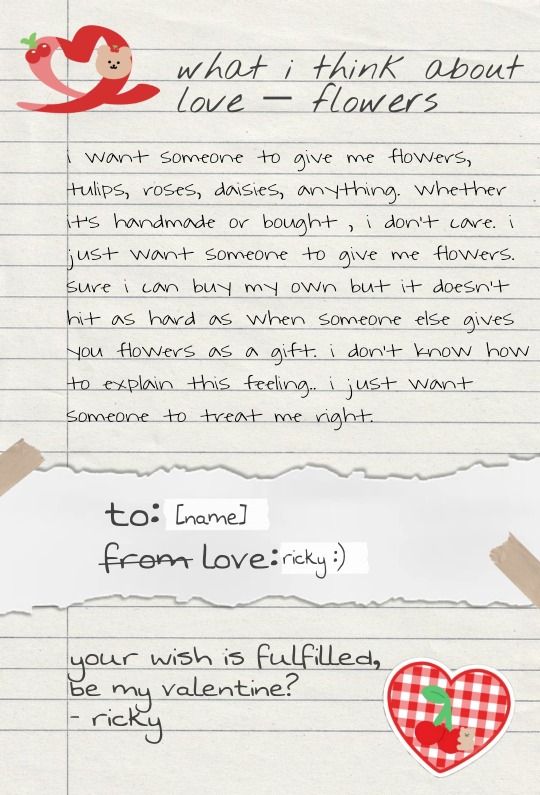 what i think about
love — flowers
i want someone to give me flowers,
tulips, roses, daisies, anything. Whether
it's handmade or bought , i don't care. i
just want someone to give me flowers.
sure i can buy my own but it doesn't
hit as hard as when someone else gives
you flowers as a gift. i don't know how
to explain this feeling.. i just want
someone to treat me right.
to: [name]
from love: ricky :)
your wish is fulfilled,
be my valentine?
- ricky